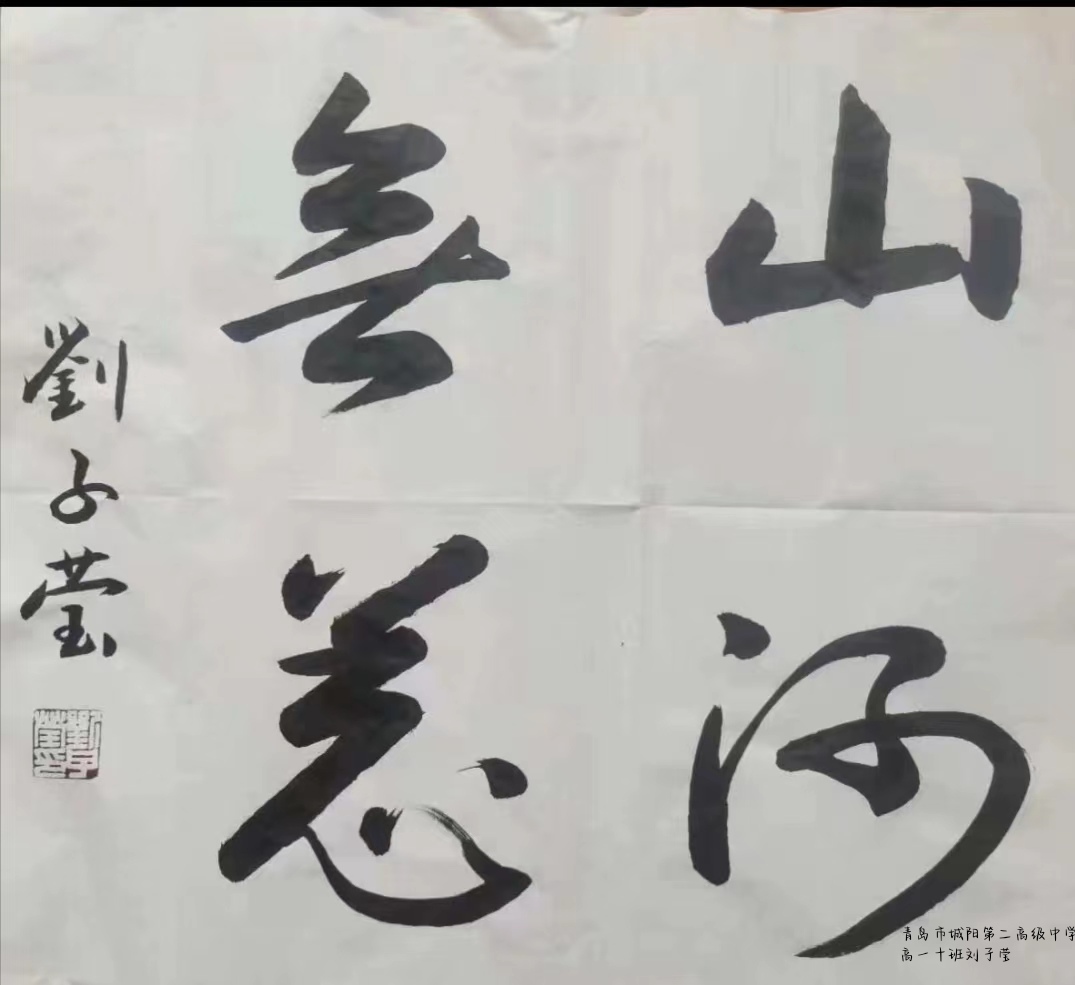 山河
無恙
劉子莹
劉子莹印
青岛市城阳第二高级中学
高一十班刘子莹